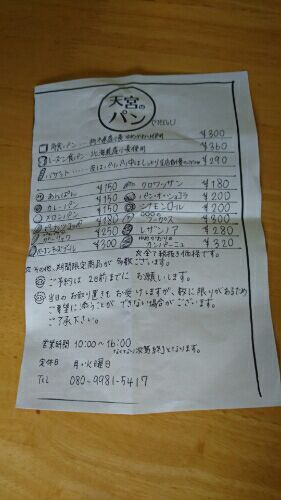 天宮の
パン
角食パン… ¥300
レーズン食パン 北海道産小麦使用 ¥360
バゲット…… ¥290
あんぱん ¥150 クロワッサン ¥180
カレーパン ¥150 パン・オ・ショコラ ¥200
メロンパン シナモンロール ¥200
¥250 クーヘックス ¥300
¥300 レザンノア ¥280
カンパーニュ ¥320
☆全て税抜き価格です。
☆その他、期間限定商品が多数ございます。
ご予約は 2日前までに お願いします。
当日のお取り置きも お受けしますが、数に限りがあるため
ご要望に添うことが できない場合がございます。
ご了承下さい。
営業時間 10:00〜16:00
なくなり次第終了となります。
定休日 月・火曜日
TEL 080-9981-5417